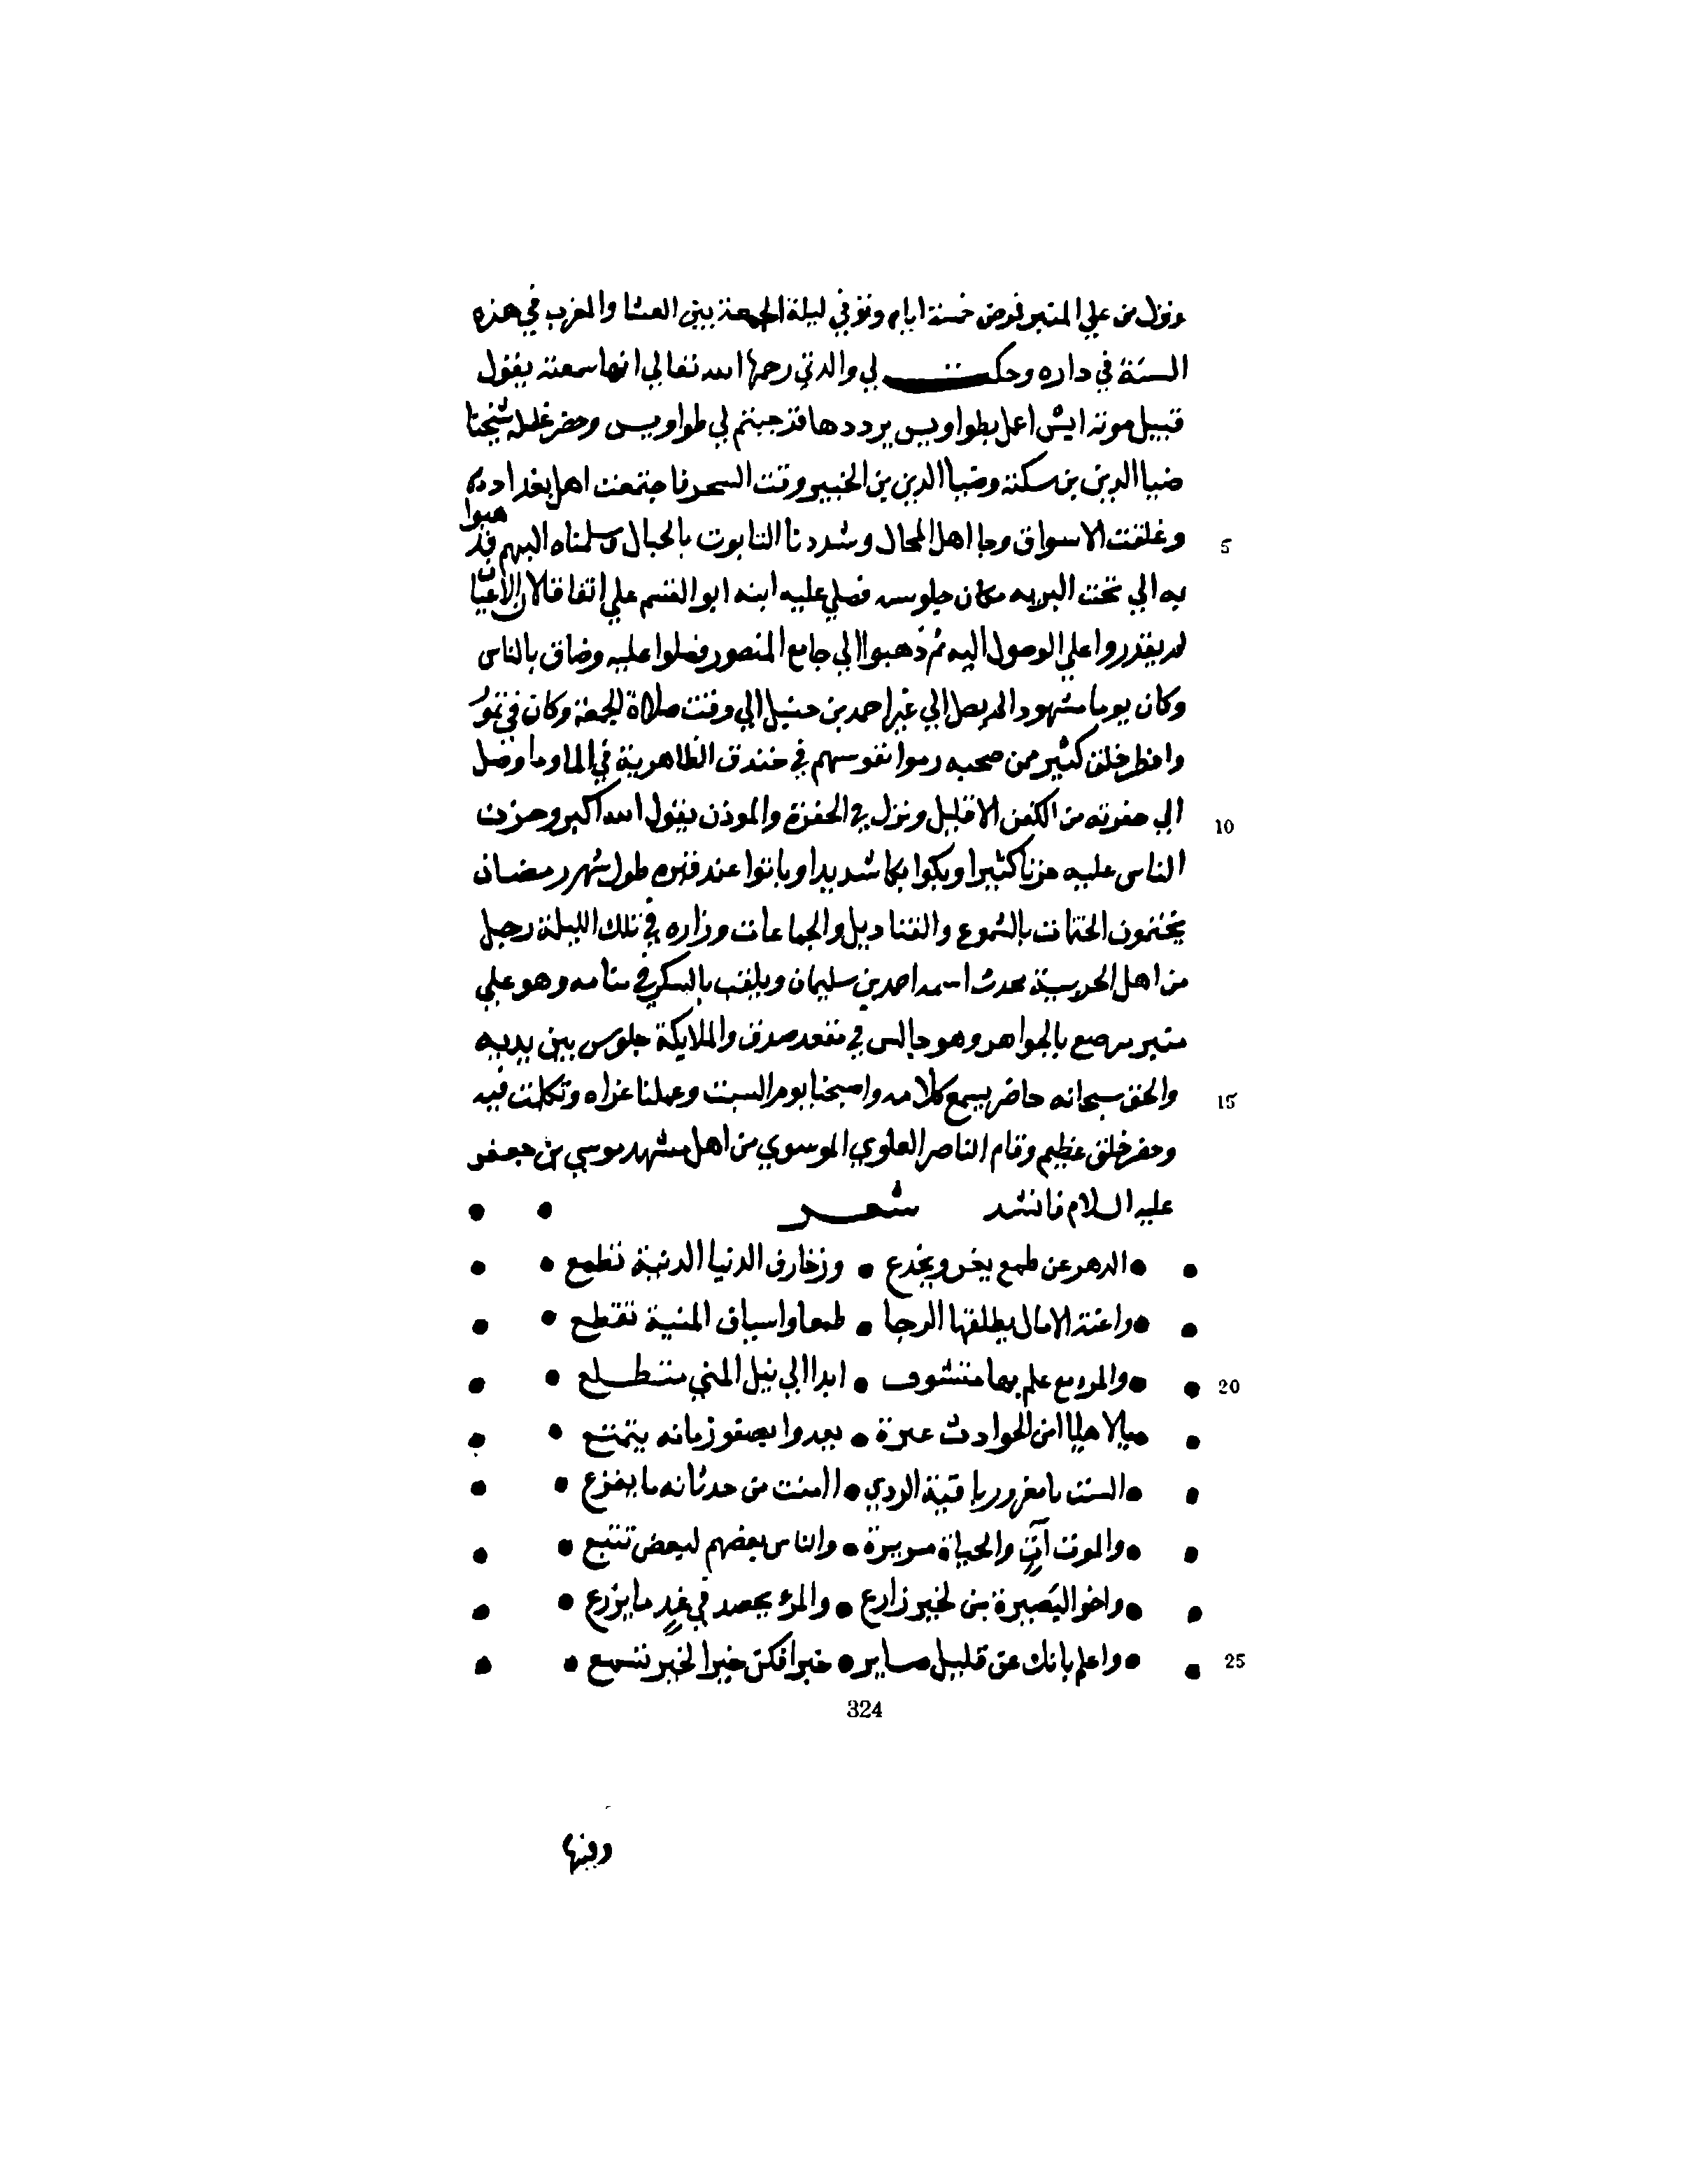 ونزل من علي المنبر فمرض خمسة ايام وتوفي ليلة الجمعة بين العشا والمغرب في هذه
السنة في داره وحكت لي والدتي رحمها الله تعالي انها سمعته يقول
قبيل موته ايش اعمل بطواويس يرددها قد جبتم لي طواويس وحضر غسله شيخنا
ضيا الدين بن سكينة وضيا الدين بن الخبير وقت السحر فاجتمعت اهل بغداد
وغلقت الاسواق وجا اهل المحال وشددنا التابوت بالحبال وسلمناه اليهم فذهبوا
به الي تحت التربه مكان جلوسه فصلي عليه ابنه ابو القسم علي اتفاقا لان الاعيان
لم يقدروا علي الوصول اليه ثم ذهبوا الي جامع المنصور فصلوا عليه وضاق بالناس
وكان يوما مشهودا لم يصل الي قبر احمد بن حنبل الي وقت صلاة الجمعة وكان في تموز
وافطر خلق كثير ممن صحبه رموا نفوسهم في خندق الظاهرية في الما وما وصل
الي حفرته من الكفن الا قليل ونزل في الحفرة والموذن يقول الله اكبر وحزن
الناس عليه حزنا كثيرا وبكوا بكا شديدا وباتوا عند قبره طول شهر رمضان
يختمون الختمات بالشموع والقناديل والجماعات وزاره في تلك الليلة رجل
من اهل الحربية محدث اسمه احمد بن سليمان ويلقب بالسكر في منامه وهو علي
منبر مرصع بالجواهر وهو جالس في مقعد صدق والملايكة جلوس بين يديه
والحق سبحانه حاضر يسمع كلامه واصبحنا يوم السبت وعملنا عزاه وتكلمت فيه
وحضر خلق عظيم وقام الناصر العلوي الموسوي من اهل مشهد موسي بن جعفر
عليه السلام فانشد شعر
الدهر عن طمع يغر ويخدع • وزخارف الدنيا الدنية تطمع
واعنة الامال يطلقها الرجا • طمعا واسياف المنية تقطع
والمرء مع علم بها متشوف • ابدا الي نيل المني متطلع
من الحوادث عبرة • بصفو زمانه يتمتع
يا مغرور • امنت من حدثانه ما يفزع
والموت آتٍ والحياة مريرة • والناس بعضهم لبعض تتبع
واخو البصيرة من لخير زارع • والمرء يحصد في غدٍ ما يزرع
واعلم بانك عن قليل صاير • خبرا فكن خيرا لخير تسمع
5
10
15
20
25
324
وفيها